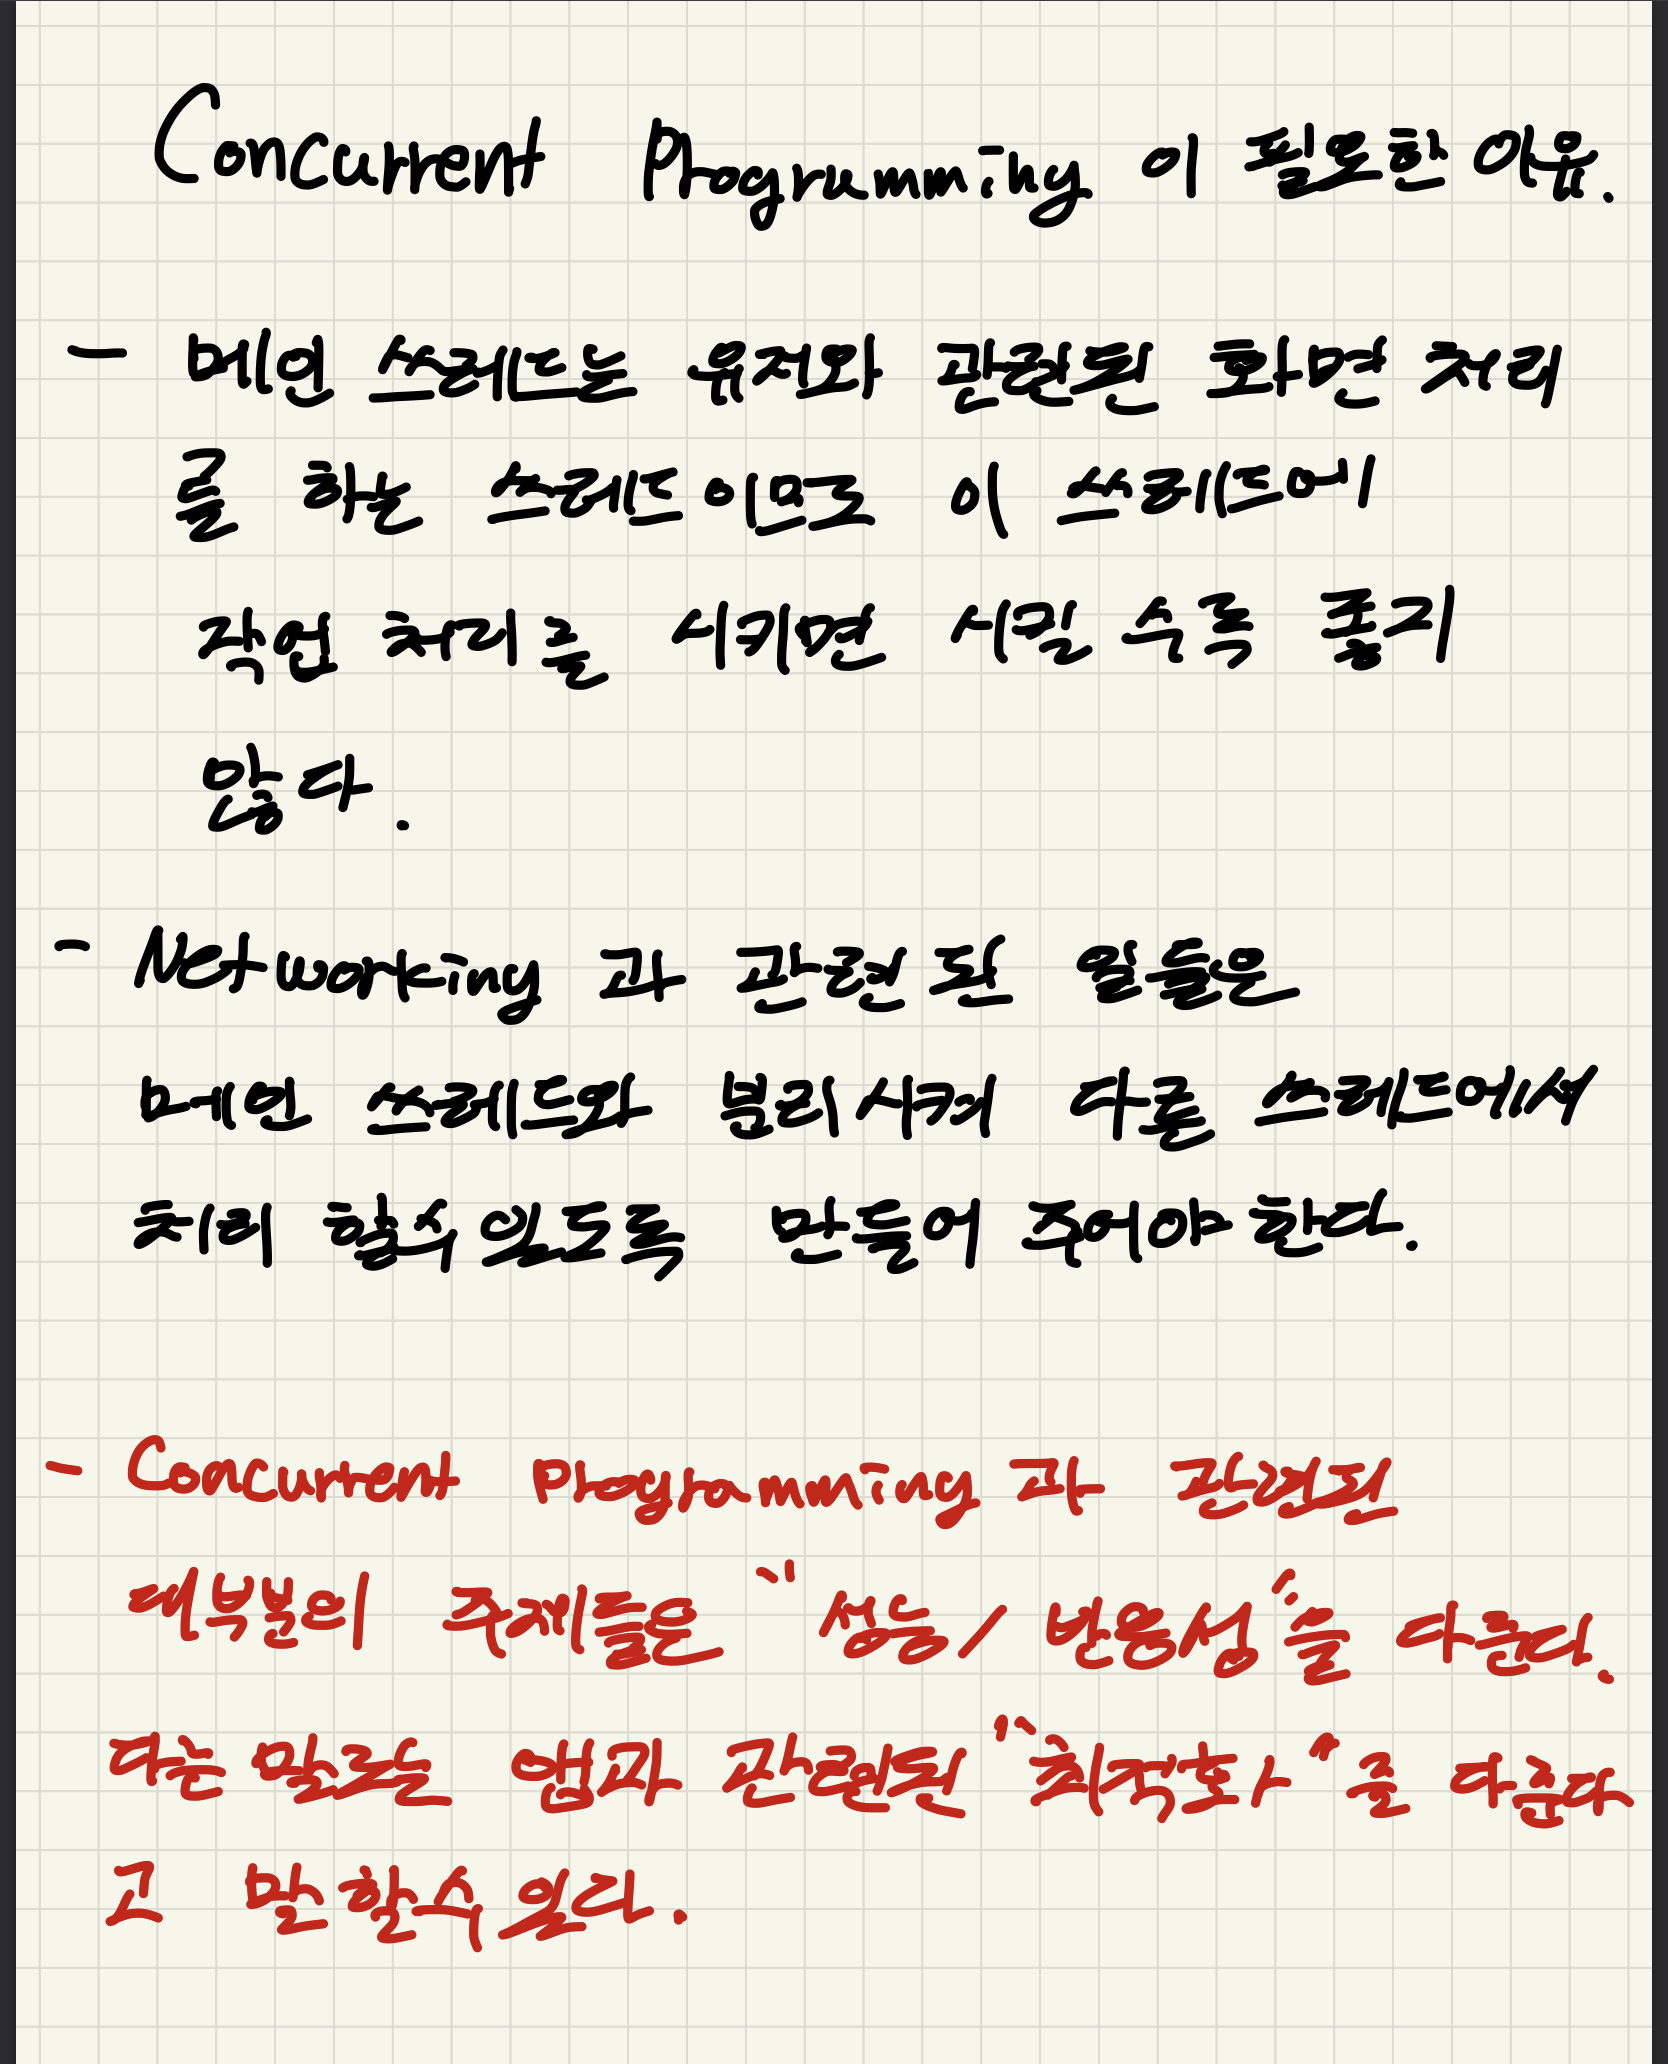 Concurrent Programming 이 필요한 이유.
- 메인 쓰레드는 유저와 관련된 화면 처리
를 하는 쓰레드이므로 이 쓰레드에
작업 처리를 시키면 시킬 수록 좋지
않다.
- Networking 과 관련된 일들은
메인 쓰레드와 분리시켜 다른 쓰레드에서
처리 할수 있도록 만들어 주어야 한다.
- Concurrent Programming 과 관련된
대부분의 주제들은 "성능/ 반응성"을 다룬다.
다는 말로는 앱과 관련된 "최적화"를 다룬다
고 말할수 있다.